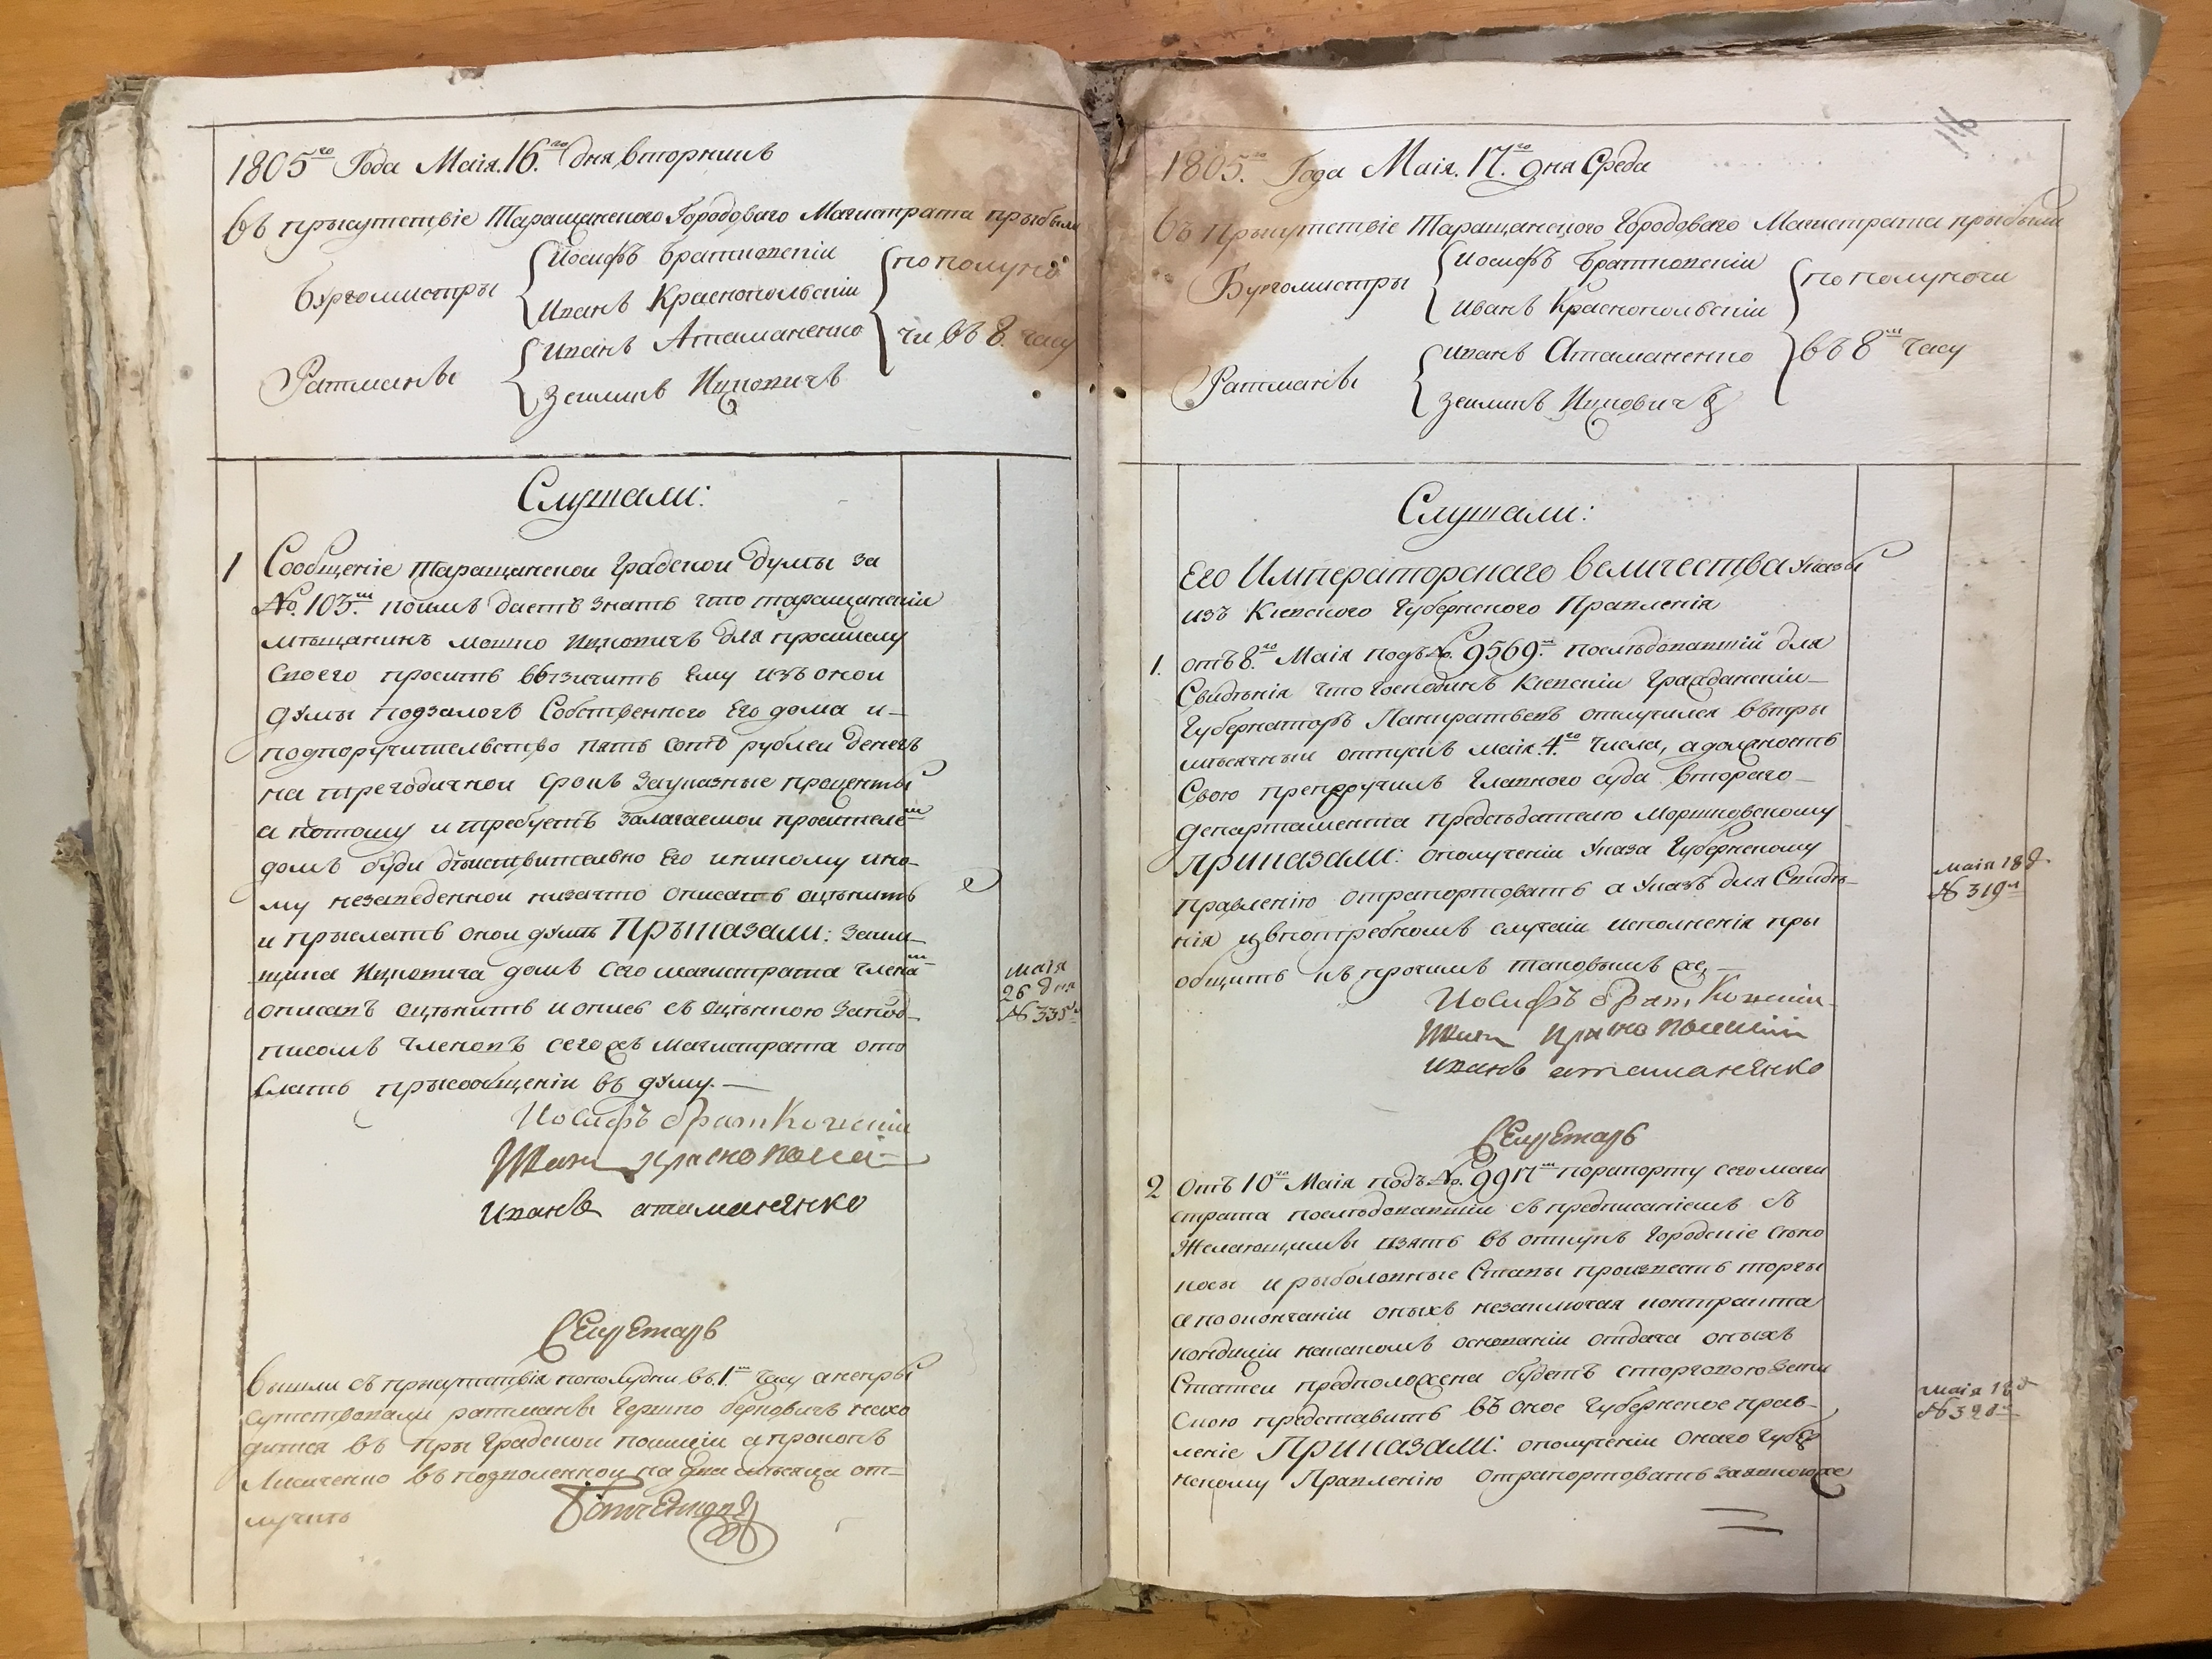 1805го Года Маія. 16.го дня вторникъ
въ прысутствіе Таращанского Городоваго Магистрата прыбыли
Бургомистры
Иосифъ Братковскіи
Иванъ Краснопольскіи
Ратманы
Иванъ Атаманенко
Зеиликъ Ицковичъ
по полуно
чи въ 8. часу
Слушали:
1 Сообщеніе таращанскои градскои думы за
№. 103.м коимъ даетъ знать что таращанскіи
мѣщанинъ мошко Ицковичъ для промислу
своего проситъ въ ему изъ онои
думы подзалогъ Собственного Его дома и
подпоручительство пять сотъ рублеи денегъ
на срокъ зауказные проценты
а потому и требуетъ залагаемои просителем
домъ буди дѣиствительно Его иникому ино
му незаведеннои низачто описать оцѣнить
и прыслать онои думѣ Прыказали: заил
Ицковича домъ сего магистрата члена
описать оцѣнить и опись съ оцѣнкою запод
писомъ членовъ сегожъ магистрата ото
слать прысообщеніи въ думу.
маія
26 дня
№ 335м
Иосифъ Братковскіи
Иванъ
Иванъ атаманѣнко
СЕкрЕтарь
Вышли съ присутствія пополудни въ 1.м часу а непры
сутствовали ратманы Гершко Берковичъ нахо
дится въ пры градскои полиціи а прокопъ
Лисиченко въ подволеннои на два мѣсяца от
лучить
116
1805.го Года Маія. 17.го дня Среда
въ Прысутствіе Таращанского Городоваго Магистрата прыбыли
Бургомистры
Иосифъ Братковскіи
Иванъ Краснопольскіи
Ратманы
Иванъ Атаманенко
Зеиликъ Ицковичъ
по полуночи
въ 8м часу
Слушали:
Его Императорскаго величества указы
изъ Кіевского Губернского Правленія
1. отъ 8.го Маія подъ №. 9569.м послѣдовавшій для
Свидѣнія что Господинъ Кіевскіи Гражданскіи
Губернаторъ Панкратьевъ отлучился въ тры
мѣсячныи отпускъ маія. 4.го числа, а должность
Свою препоручилъ главного суда втораго
департамента предсѣдателю Моржковскому
Приказали: ополученіи Указа Губернскому
правленію отрапортовать а Указъ для Свидѣ
нія и впотребномъ случаи исполненія пры
общить къ прочимъ таковымъ же
маія 18 д
№ 319м
Иосифъ Братковскіи
Иванъ
Иванъ атаманѣнко
СЕкрЕтарь
2 Отъ 10го Маія подъ №. 9917м порапорту сего маги
страта послѣдовавшіи съ предписаніемъ съ
Желающимы взять въ откупъ городскіе сѣно
косы и рыболовные Ставы произвесть торгы
а по окончаніи оныхъ незаключая контракта
кондиціи накакомъ основаніи отдача оныхъ
Статеи предположена будетъ сторговою
представить въ оное Губернское прав
леніе Приказали: ополученіи Онаго Губер
нскому Правленію отрапортовать
маія 18 д
№ 320м